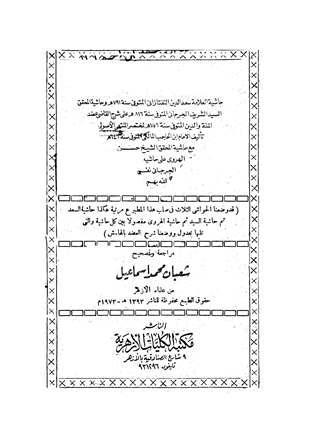 حاشية العلامة سعد الدين التفتازانى المتوفى سنة ٧٩١هـ وحاشية المحقق
السيد الشريف الجرجانى المتوفى سنة ٨١٦هـ على شرح القاضى عضد
الملة والدين المتوفى سنة ٧٥٦هـ لمختصر المنتهى الأصولى
تأليف الإمام ابن الحاجب المالكى المتوفى سنة ٦٤٦هـ
مع حاشية المحقق الشيخ حسن
الهروى على حاشية
الجرجانى نفعنى
الله بهم
( قد وضعنا الحواشى الثلاث فى صلب هذا المطبوع مرتبة هكذا حاشية السعد
ثم حاشية السيد ثم حاشية الهروى مفصولا بين كل حاشية والتى
تليها بجدول ووضعنا شرح العضد بالهامش )
مراجعة وتصحيح
شعبان محمد اسماعيل
من علماء الأزهر
حقوق الطبع محفوظة للناشر ١٣٩٣هـ - ١٩٧٣م
الناشر
مكتبة الكليات الأزهرية
٩ شارع الصنادقية بالأزهر
تليفون ٩٣١٢٩٦